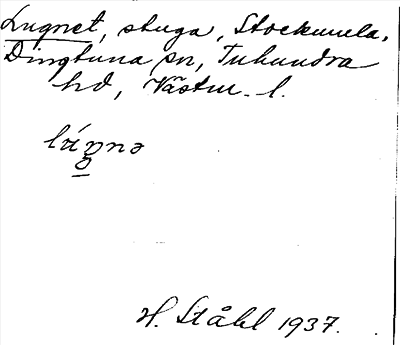 Lugnet, stuga, Stockumla,
Dingtuna sn, Tuhundra
hd, Västm. l.
H. Ståhl 1937.